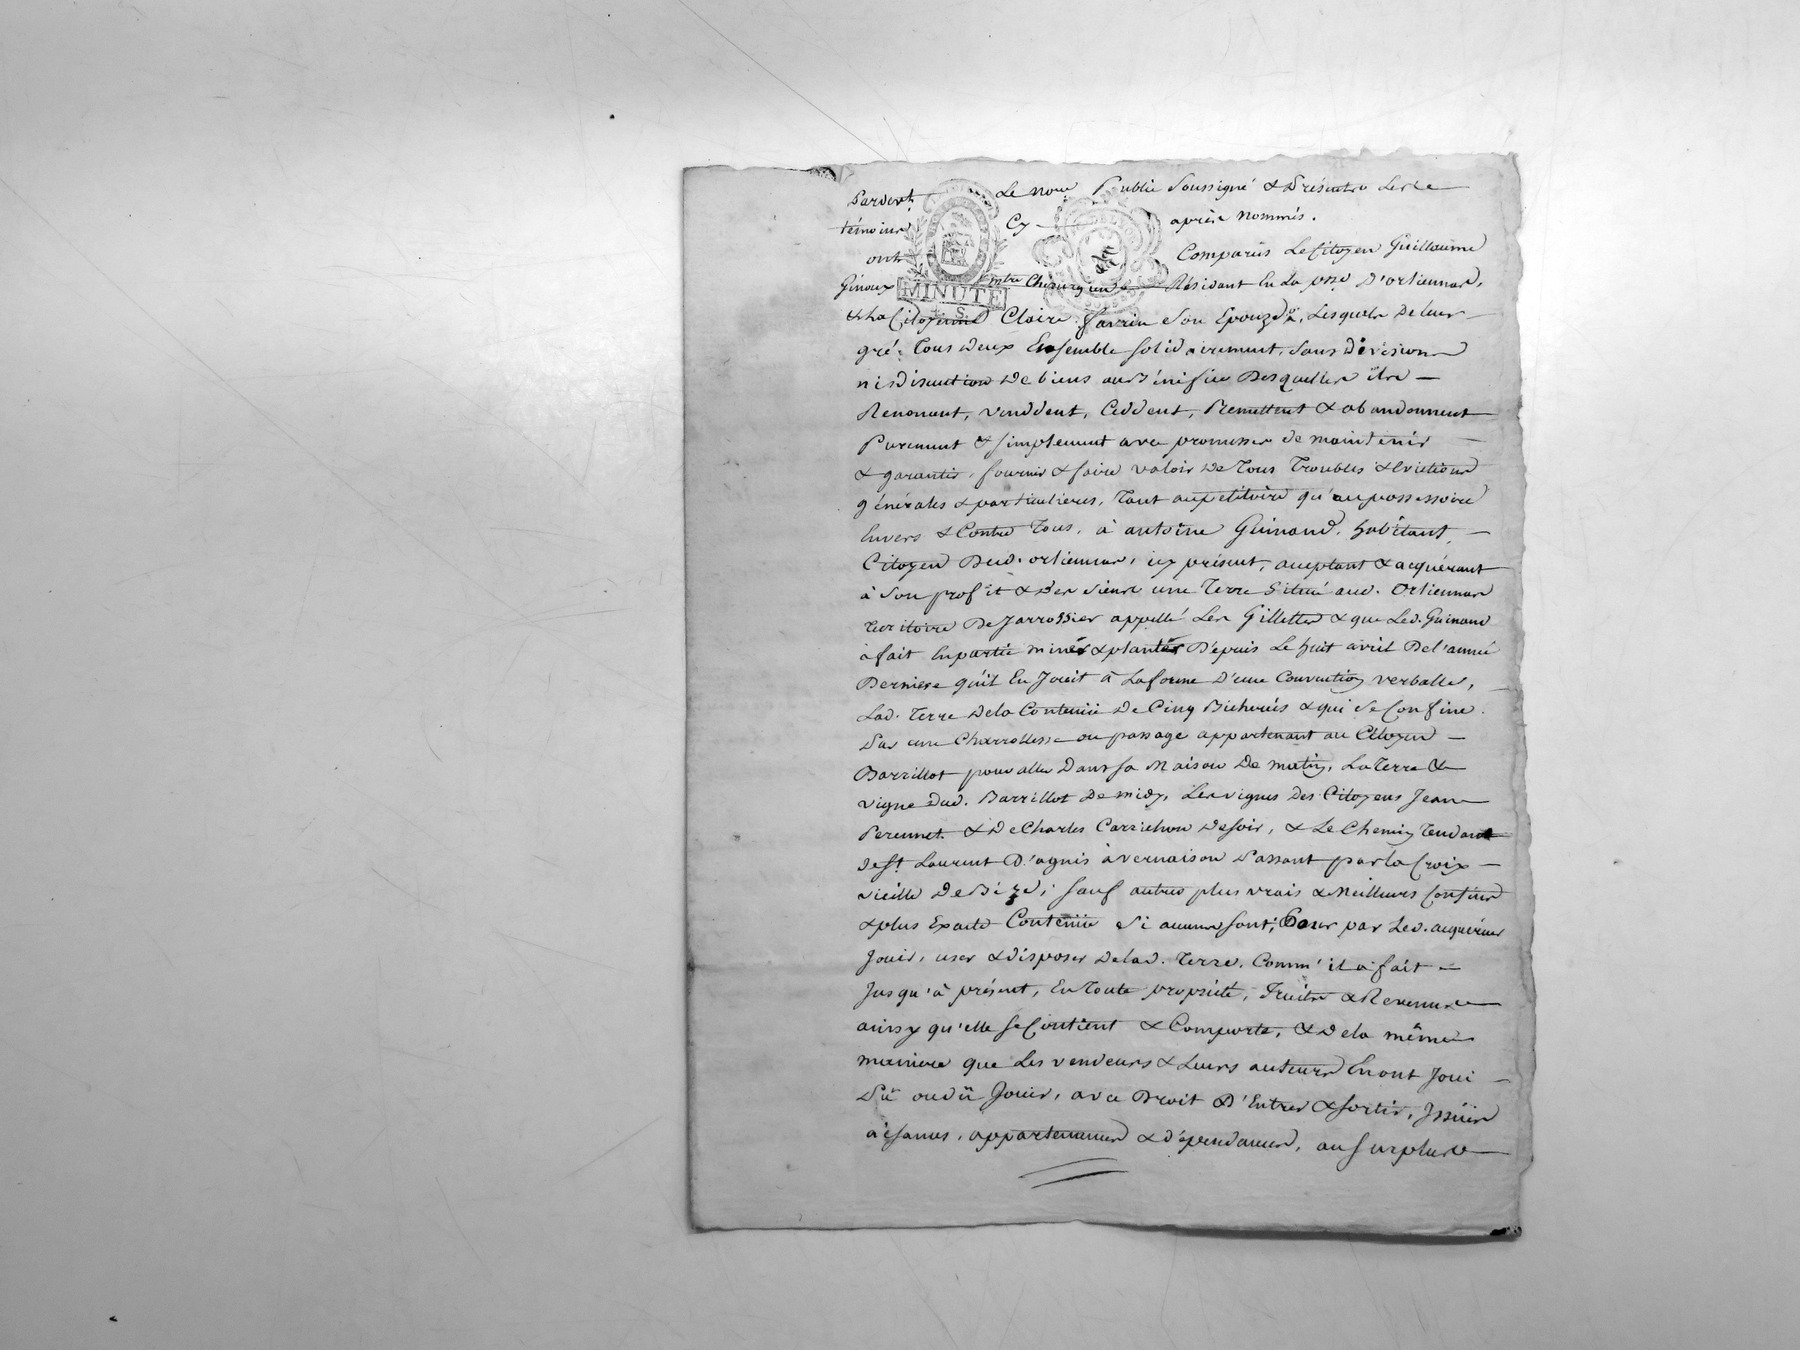 Pardevt. Le Nore. Public Soussigné & Présents Les
témoins Cy après Nommés.
ont Comparus Le Citoyen Guillaume
Ginoux mtre Chirurgien Résident En La psse D'orliennas,
MINUTE
4 S.
& La Citoyenne Claire favrin Son Epouze, Lesquels De leur
gré, Tous Deux Ensemble solidairement, Sans Division
ni Discution De biens au Bénéfice Desquelles ils
Renoncent, venddent, Ceddent, Remettent & abandonnent
Purement & simplement avec promesses de maintenir
& garantir, fournir & faire valoir De Tous Troubles & Evictions
générales & particulieres, Tant au pétitoire qu'au possessoire
Envers & Contre Tous, à antoine Guinand, habitant,
Citoyen Dud. orliennas, icy présent, acceptant & acquérant
à Son profit & des siens une Terre Située aud. Orliennas
Territoire De Jarrossier appellé Les Gillettes & que Led. Guinand
à fait En partie minér & planter Depuis Le huit avril De l'année
Derniere qu'il En Jouit à La forme D'une Convention verballe,
Lad. Terre De la Contenue De Cinq Bicherées & qui Se Confine
Par une Charrollesse ou passage appartenant au Citoyen
Barrillot pour aller Dans sa Maison De matin, La Terre &
vigne Dud. Barrillot De midy, Les vignes Des Citoyens Jean
Perennet & De Charles Carrichon De soir, & Le Chemin Tendant
De St. Laurent D'agnis à vernaison Passant par la Croix
vieille De Bize, sauf autres plus vrais & Meilleurs Confins
& plus Exacte Contenue Si aucuns sont; Pour par Led. acquéreur
Jouir, user & disposer De lad. Terre, Comm' il a fait
Jusqu'à présent, En Toute propriété, Fruits & Revenus
ainsy qu'elle se Contient & Comporte, & De la même
maniere que Les vendeurs & Leurs auteurs En ont Joui
Pû ou dû Jouir, avec Droit D'Entrer & sortir, Issües
aisances, appartenances & dépendances, au surplus